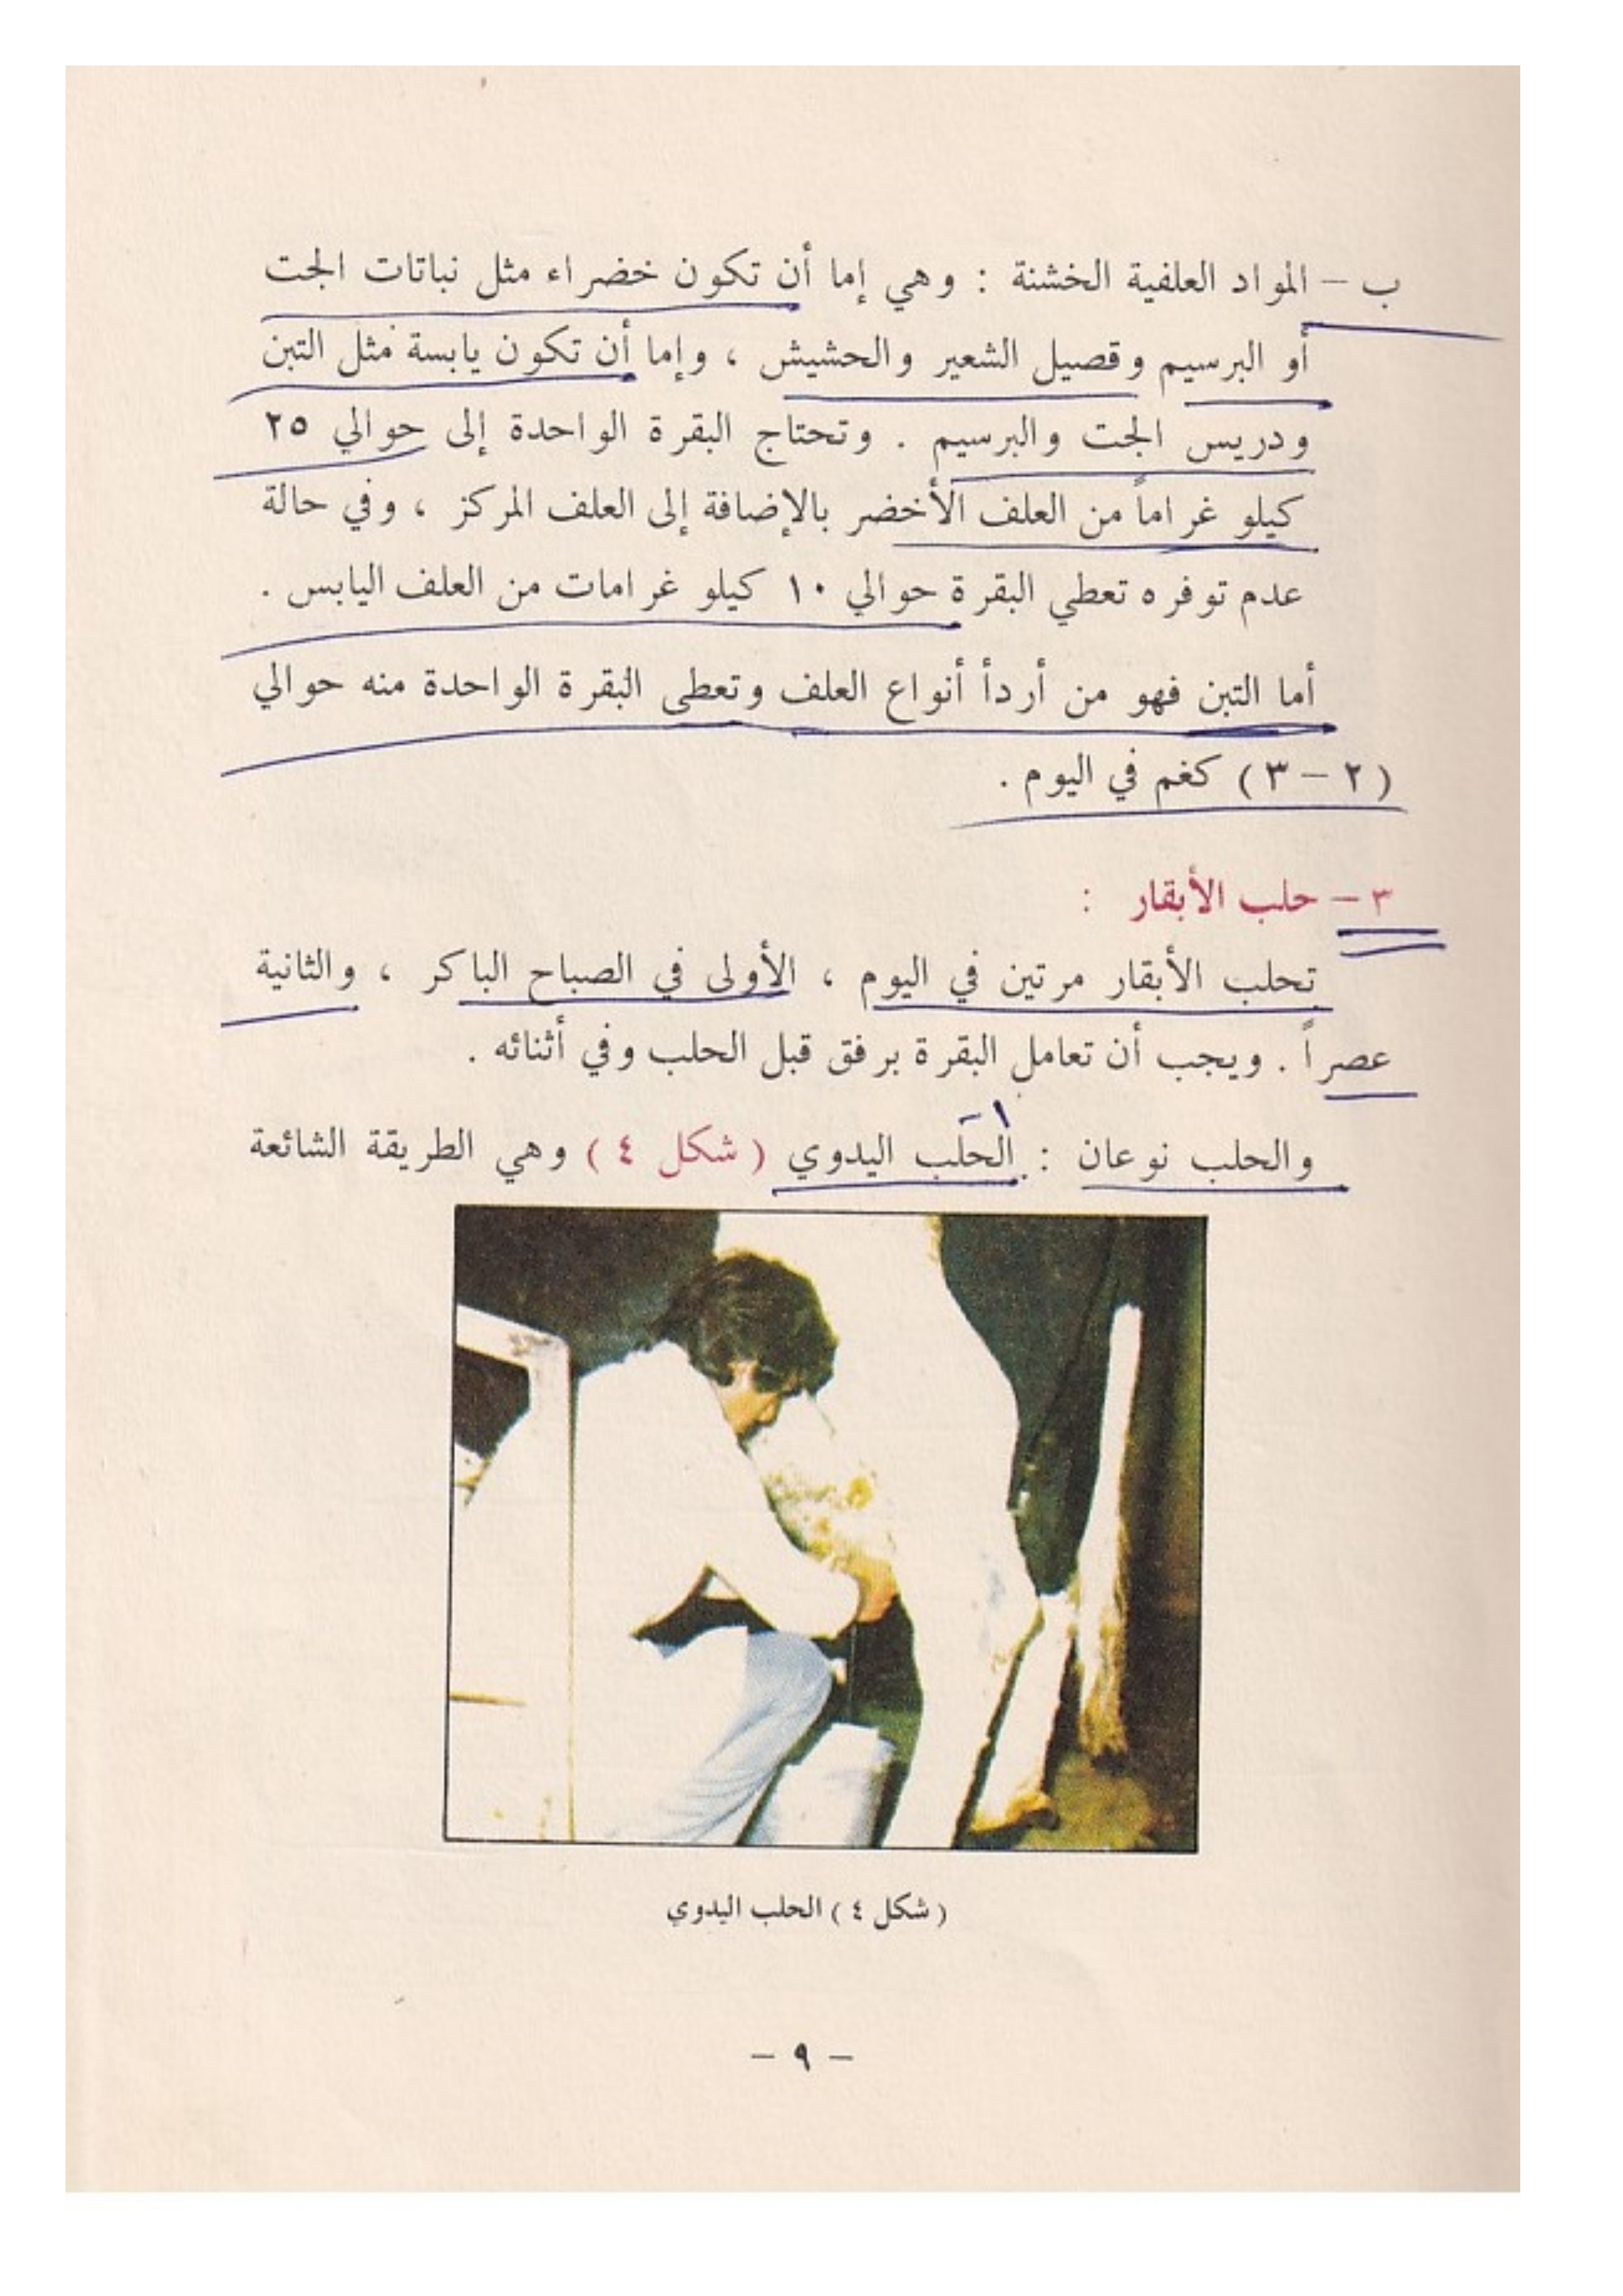 ب – المواد العلفية الخشنة : وهي إما أن تكون خضراء مثل نباتات الجت
أو البرسيم وقصيل الشعير والحشيش ، وإما أن تكون يابسة مثل التبن
ودريس الجت والبرسيم . وتحتاج البقرة الواحدة إلى حوالي ٢٥
كيلو غراماً من العلف الأخضر بالإضافة إلى العلف المركز ، وفي حالة
عدم توفره تعطي البقرة حوالي ١٠ كيلو غرامات من العلف اليابس .
أما التبن فهو من أردأ أنواع العلف وتعطى البقرة الواحدة منه حوالي
( ٢ – ٣ ) كغم في اليوم .
٣ – حلب الأبقار :
تحلب الأبقار مرتين في اليوم ، الأولى في الصباح الباكر ، والثانية
عصراً . ويجب أن تعامل البقرة برفق قبل الحلب وفي أثنائه .
١ -
والحلب نوعان : الحلب اليدوي ( شكل ٤ ) وهي الطريقة الشائعة
( شكل ٤ ) الحلب اليدوي
– ٩ –